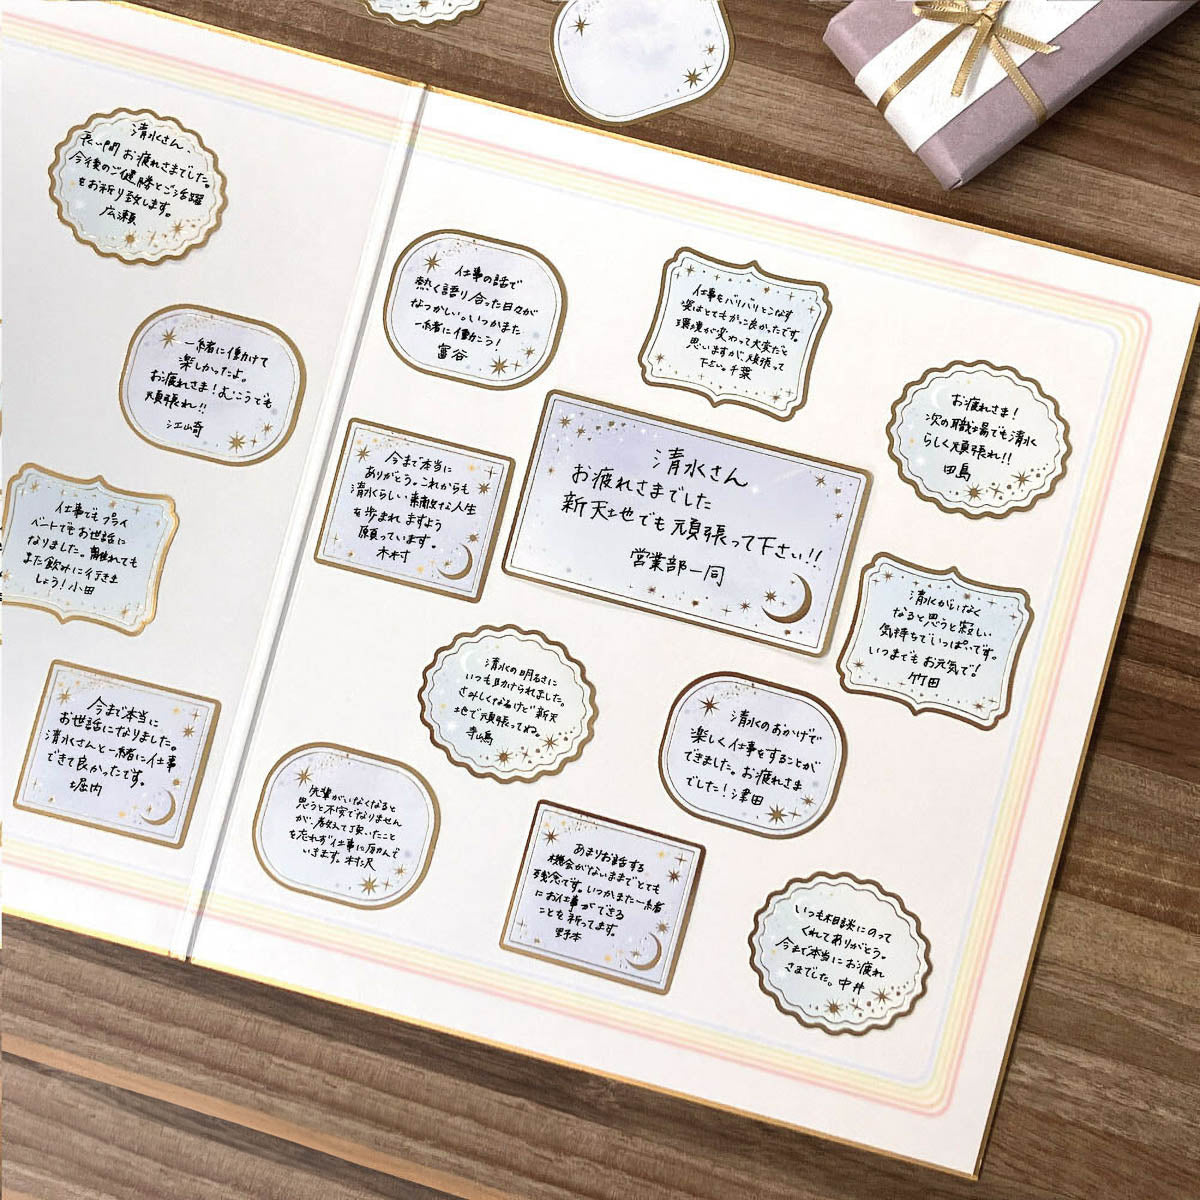 清水さん、
長い間 お疲れさまでした。
今後のご健勝とご活躍
をお祈り致します。
広瀬
一緒に働けて
楽しかったよ。
お疲れさま！むこうでも
頑張れ!!
江崎
仕事でもプライ
ベートでもお世話に
なりました。離れても
また飲みに行きま
しょう！小田
今まで本当に
お世話になりました。
清水さんと一緒に仕事
できて良かったです。
堀内
仕事の話で
熱く語り合った日々が
なつかしい。いつかまた
一緒に働こう！
富谷
仕事をバリバリとこなす
姿はとてもかっこ良かったです。
環境が変わって大変だと
思いますが、頑張って
下さい。千葉
お疲れさま！
次の職場でも清水
らしく頑張れ!!
田島
今まで本当に
ありがとう。これからも
清水らしい素敵な人生
を歩まれますよう
願っています。
木村
清水さん
お疲れさまでした
新天地でも頑張って下さい!!
営業部一同
清水がいなく
なると思うと寂しい
気持ちでいっぱいです。
いつまでもお元気で！
竹田
清水の明るさに
いつも助けられました。
さみしくなるけど新天
地で頑張ってね。
寺島
清水のおかげで
楽しく仕事をすることが
できました。お疲れさま
でした！津田
先輩がいなくなると
思うと不安でなりません
が、教えて頂いたこと
を忘れず仕事に励んで
いきます。村沢
あまりお話する
機会がないままでとても
残念です。いつかまた一緒
にお仕事ができる
ことを祈ってます。
野本
いつも相談にのって
くれてありがとう。
今まで本当にお疲れ
さまでした。中井